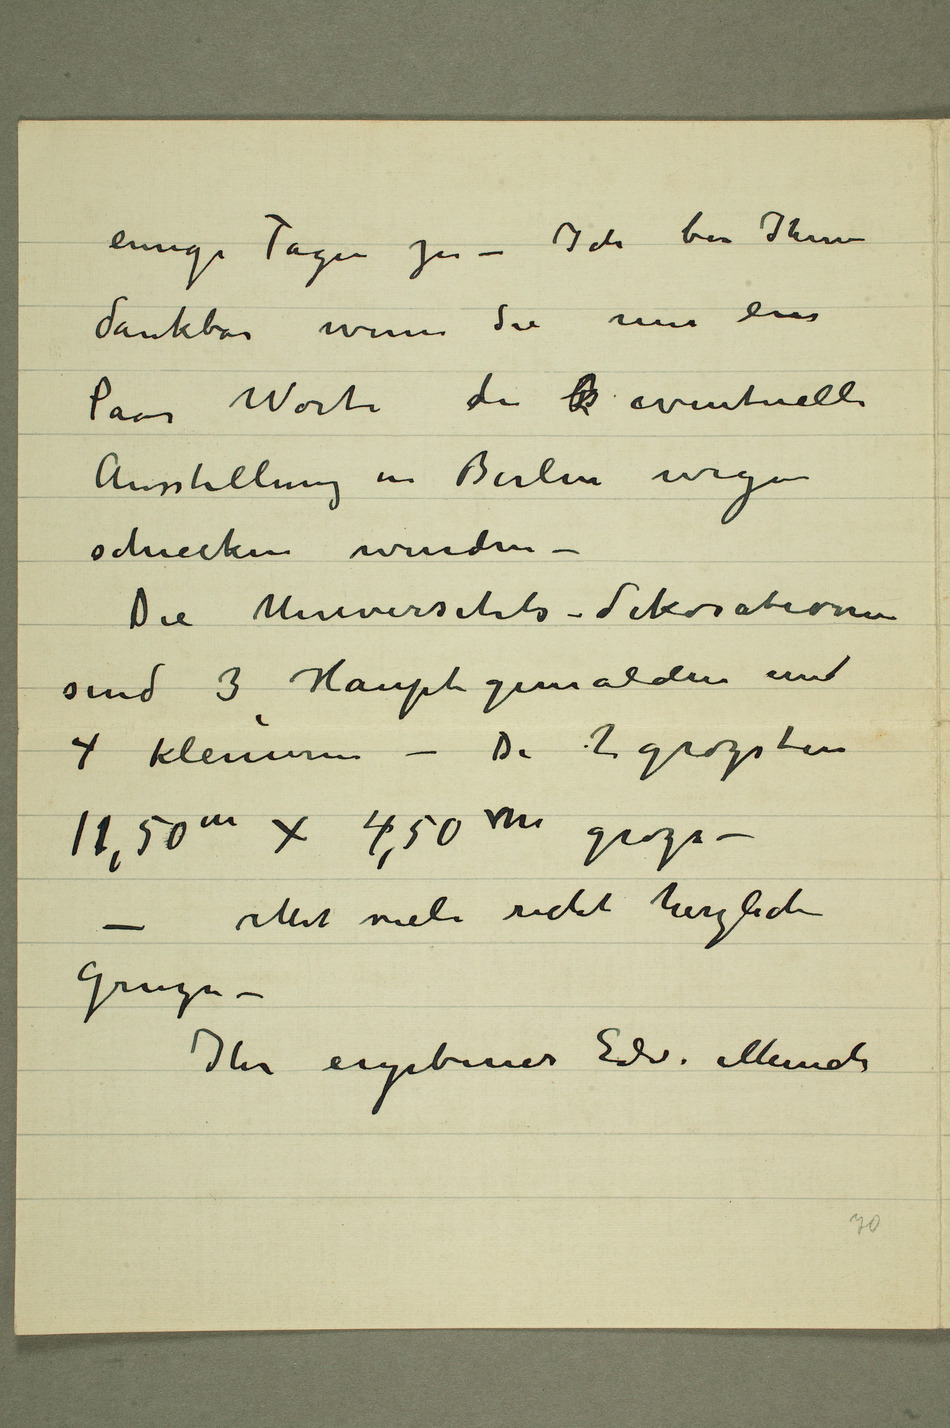 einige Tagen zu – Ich bin Ihnen
dankbar wenn Sie mir ein
Paar Worte die eventuelle
Ausstellung in Berlin wegen
schicken wurden –
Die Universitets-dekorationen
sind 3 Hauptgemälden und
4 kleineren – Die 2 grozsten
11,50 m × 4,50 m grozs –
– Mit viele recht herzliche
Gruzse –
Ihr ergebener Edv. Munch
70